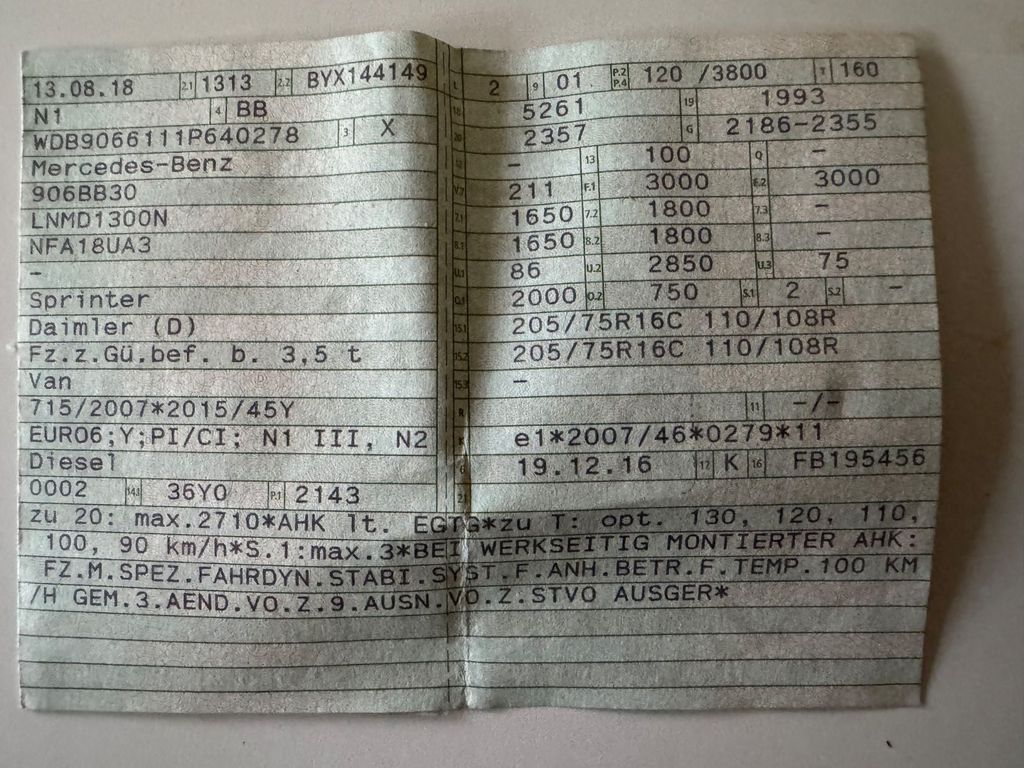 13.08.18 2.1 1313 2.2 BYX144149
N1 4 BB
WDB9066111P640278 3 X
Mercedes-Benz
906BB30
LNMD1300N
NFA18UA3
-
Sprinter
Daimler (D)
Fz.z.Gü.bef. b. 3,5 t
Van
715/2007*2015/45Y
EURO6;Y;PI/CI; N1 III, N2
Diesel
0002 14.1 36Y0 P.1 2143
L 2 9 01 P.2 P.4 120 /3800 T 160
18 5261 19 1993
20 2357 G 2186-2355
12 - 13 100 Q -
V.7 211 F.1 3000 F.2 3000
7.1 1650 7.2 1800 7.3 -
8.1 1650 8.2 1800 8.3 -
U.1 86 U.2 2850 U.3 75
O.1 2000 O.2 750 S.1 2 S.2 -
15.1 205/75R16C 110/108R
15.2 205/75R16C 110/108R
15.3 -
R 11 -/-
K e1*2007/46*0279*11
6 19.12.16 17 K 16 FB195456
21
zu 20: max.2710*AHK lt. EGTG*zu T: opt. 130, 120, 110,
100, 90 km/h*S.1:max.3*BEI WERKSEITIG MONTIERTER AHK:
FZ.M.SPEZ.FAHRDYN.STABI.SYST.F.ANH.BETR.F.TEMP.100 KM
/H GEM.3.AEND.VO.Z.9.AUSN.VO.Z.STVO AUSGER*